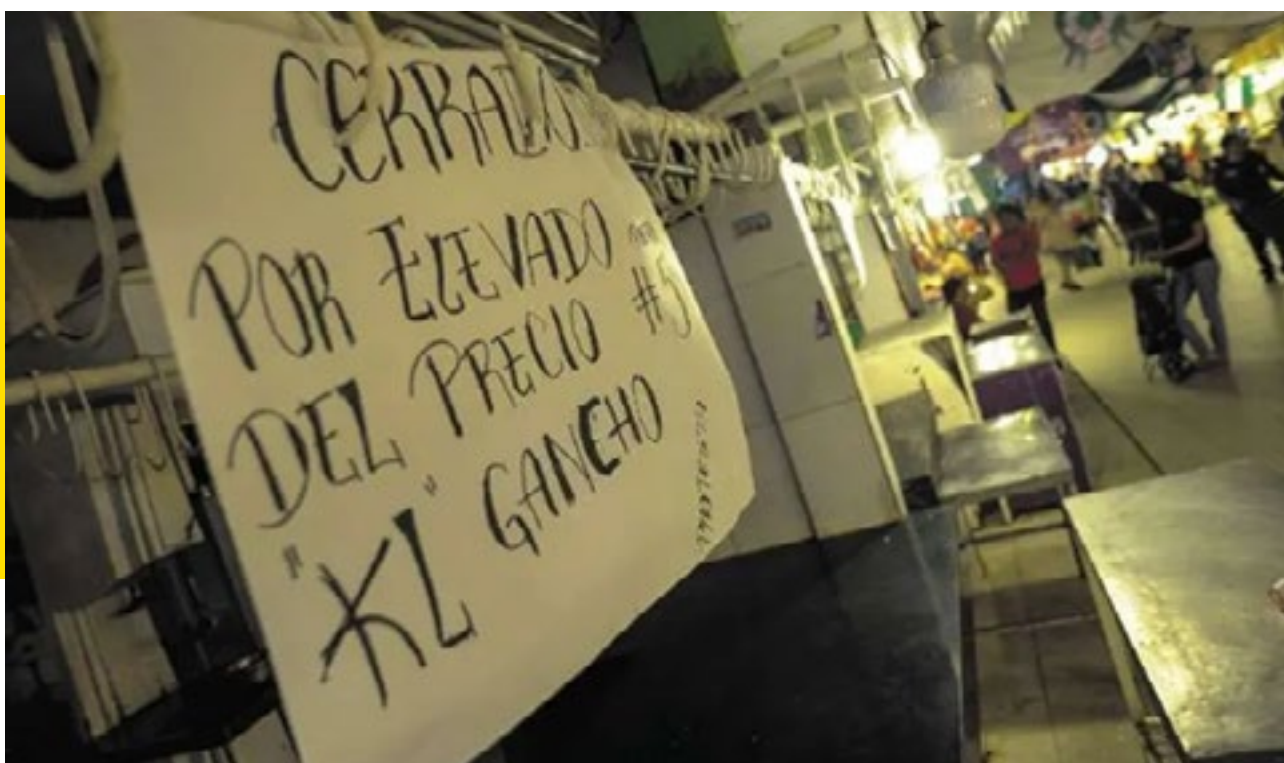 CERRADO
POR ELEVADO
DEL PRECIO #5
"KL" GANCHO